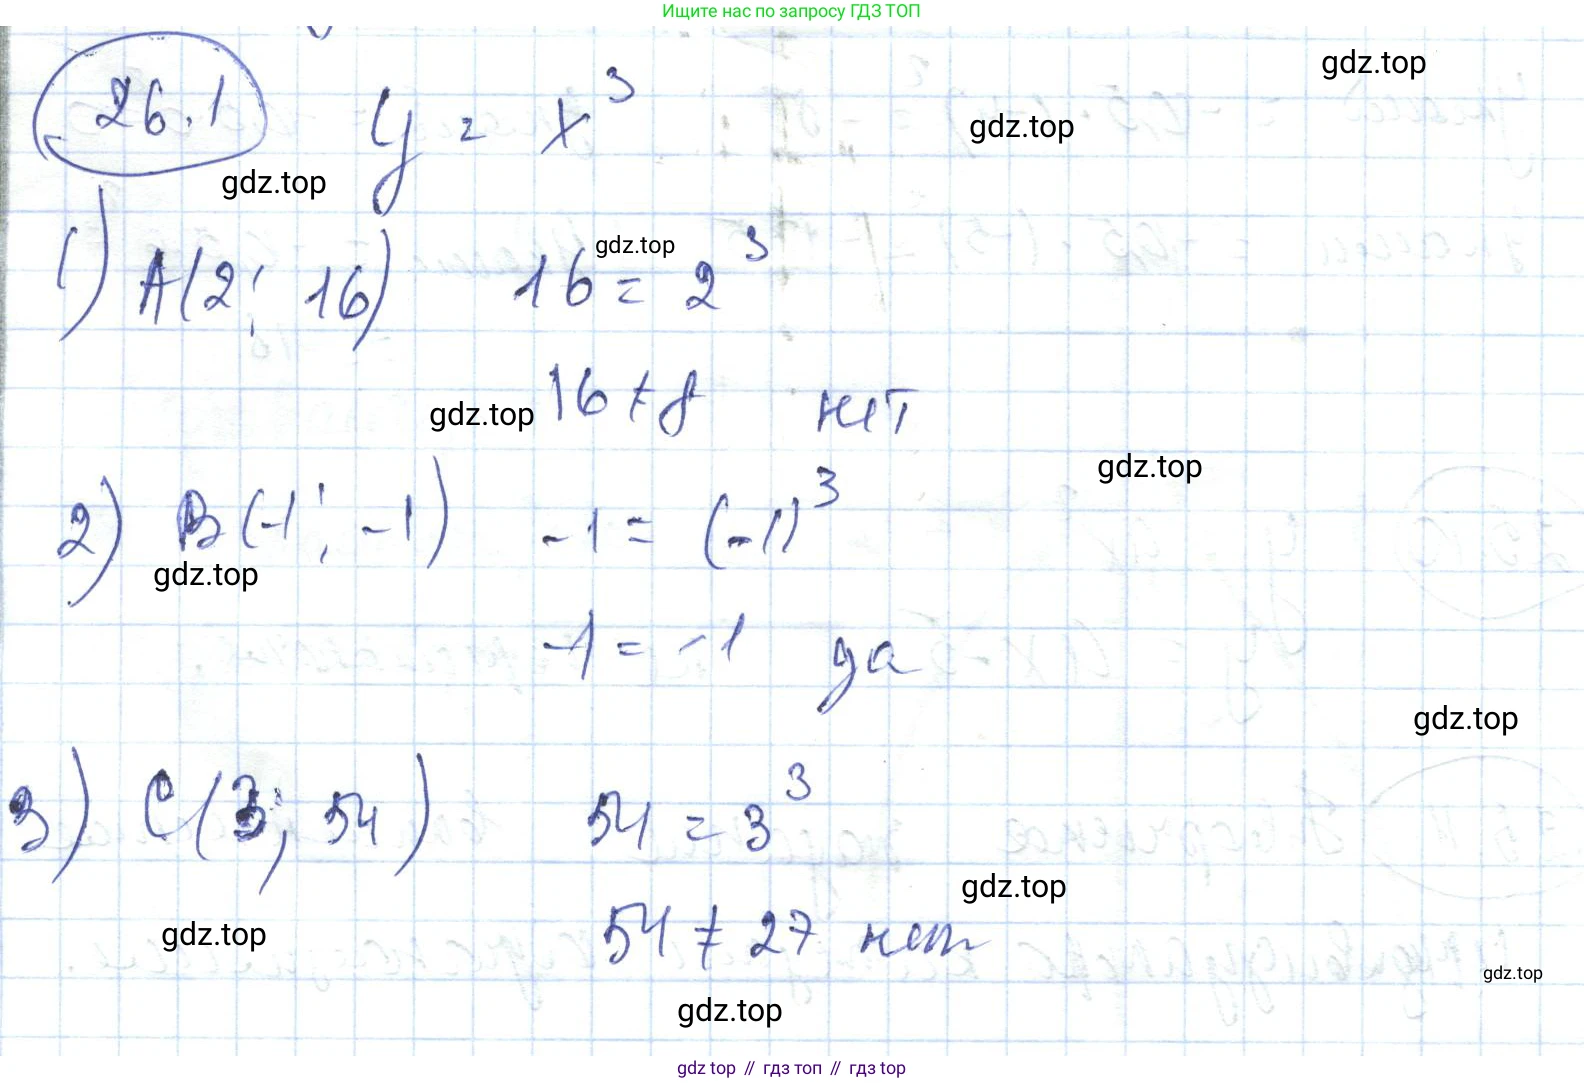 Ищите нас по запросу ГДЗ ТОП
gdz.top
26.1 y = x³
gdz.top
gdz.top
1) A(2; 16) 16 = 2³
gdz.top
16 ≠ 8 нет
gdz.top
gdz.top
2) B(-1; -1) -1 = (-1)³
gdz.top
-1 = -1 да
gdz.top
3) C(3; 54) 54 = 3³
gdz.top
54 ≠ 27 нет
gdz.top
gdz.top
gdz.top
gdz top // гдз топ // гдз top